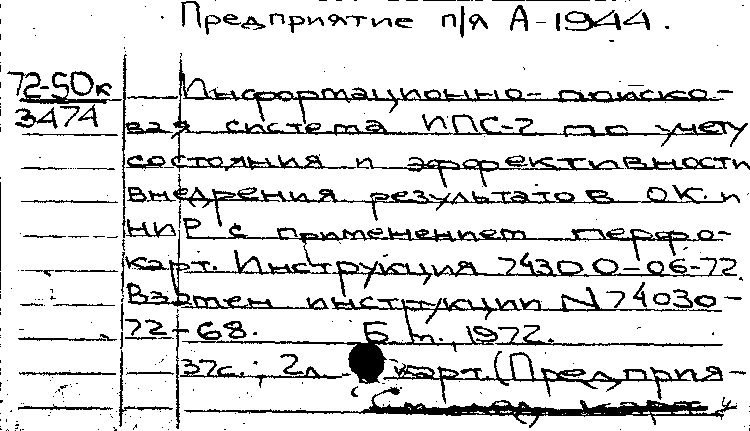 Предприятие п/я А-1944.
72-50к Информационно-поиско-
3474 вая система ИПС-2 по учету
состояния и эффективности
внедрения результатов ОК. и
НИР с применением перфо-
карт. Инструкция 74300-06-72.
Взамен инструкции N 74030-
72-68. Б.м., 1972.
37с.; 2л карт. (Предприя-